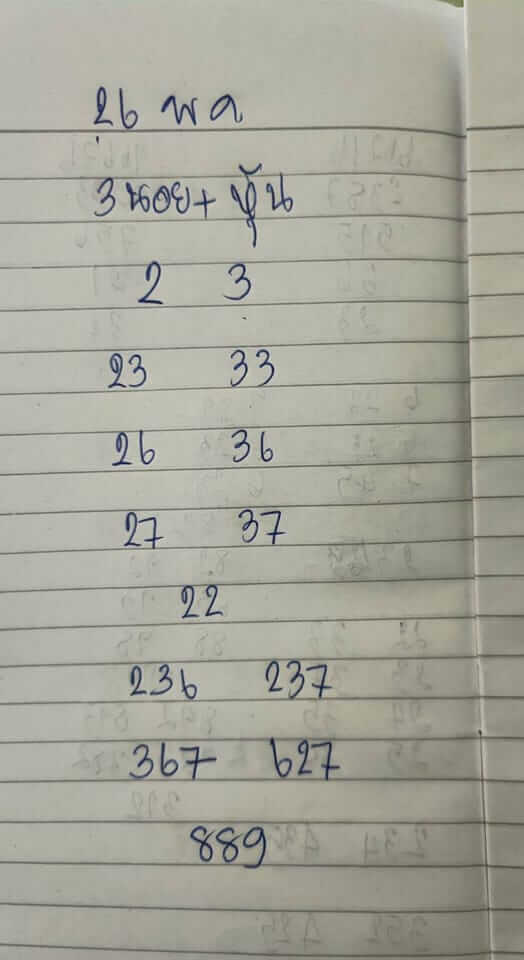 26 พ ค
3 นอย + หุ้น
2 3
23 33
26 36
27 37
22
236 237
367 627
889